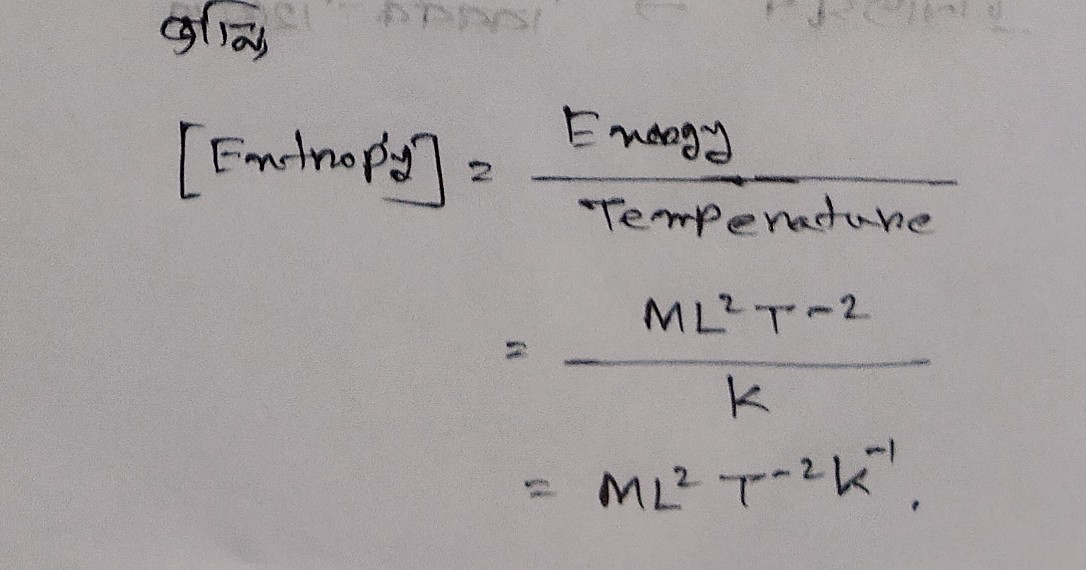 [Entropy] = Energy / Temperature
= ML² T-2 / K
= ML² T⁻² K⁻¹.